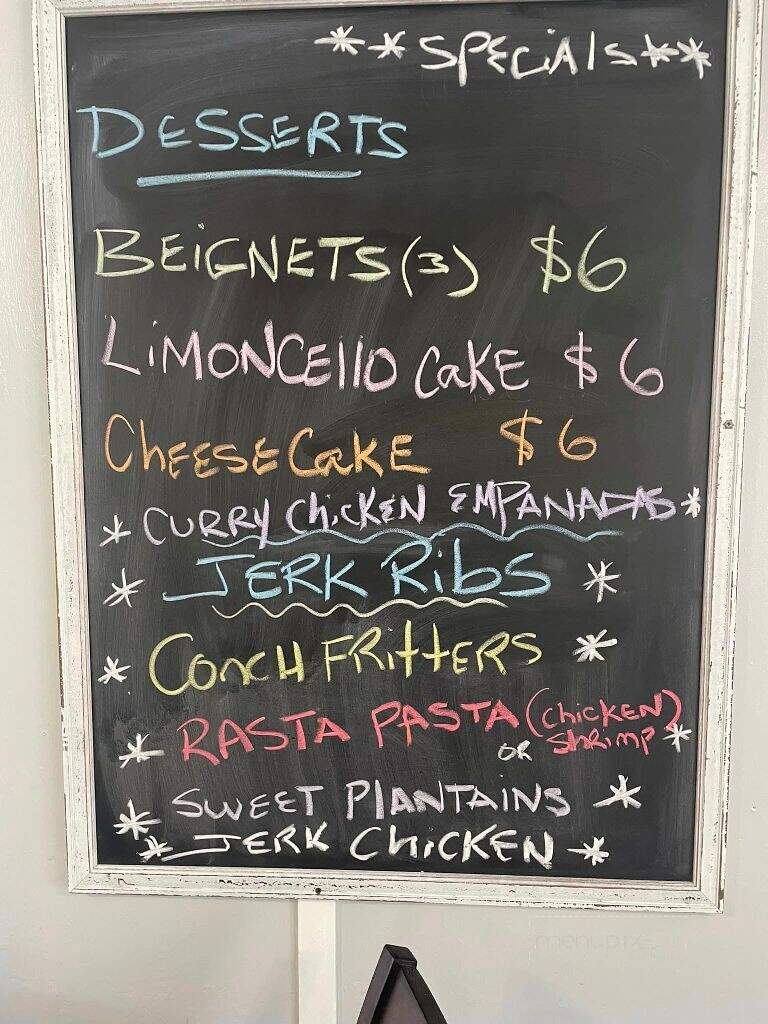 **SPECiAlS**
DESSERTS
BEiGNETS (3) $6
LiMONCEllO CaKE $6
CHEESE CaKE $6
* CURRY ChiCKEN EMPANADAS *
* JERK RibS *
* CONCH FRittERS *
* RASTA PASTA (ChiCKEN) OR ShRimp *
* SWEET PlANTAiNS *
* JERK ChiCKEN *
menupix